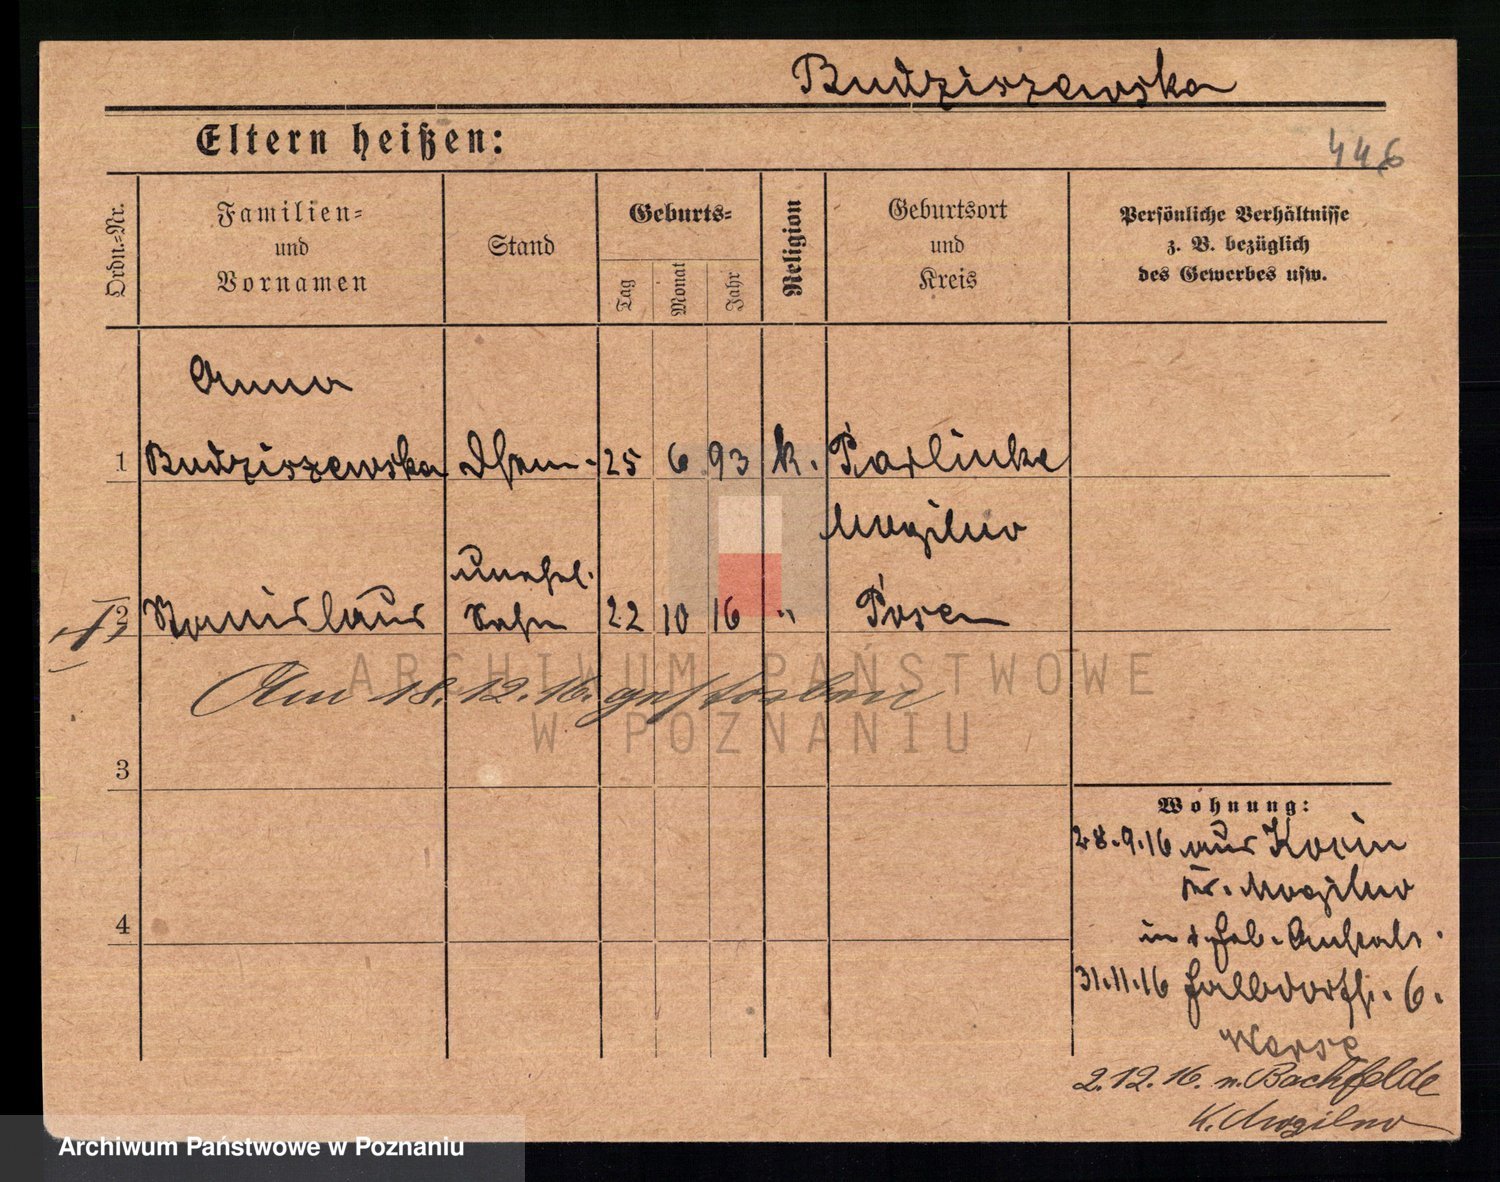 Budziszewska
Eltern heißen:
446
Ordn.=Nr.
Familien=
und
Vornamen
Stand
Geburts=
Tag
Monat
Jahr
Religion
Geburtsort
und
Kreis
Persönliche Verhältnisse
z. B. bezüglich
des Gewerbes usw.
Anna
1 Budziszewska 25 6 93 k. Parlinke
Mogilno
unehel.
2 Stanislaus Sohn 22 10 16 " Posen
Am 18.12.16. gestorben
ARCHIWUM PAŃSTWOWE
W POZNANIU
3
4
Wohnung:
28.9.16 aus
Kr. Mogilno
in d. Heb. Anstalt.
31.11.16 6.
Warse
2.12.16. n. Bachfelde
K. Mogilno
Archiwum Państwowe w Poznaniu